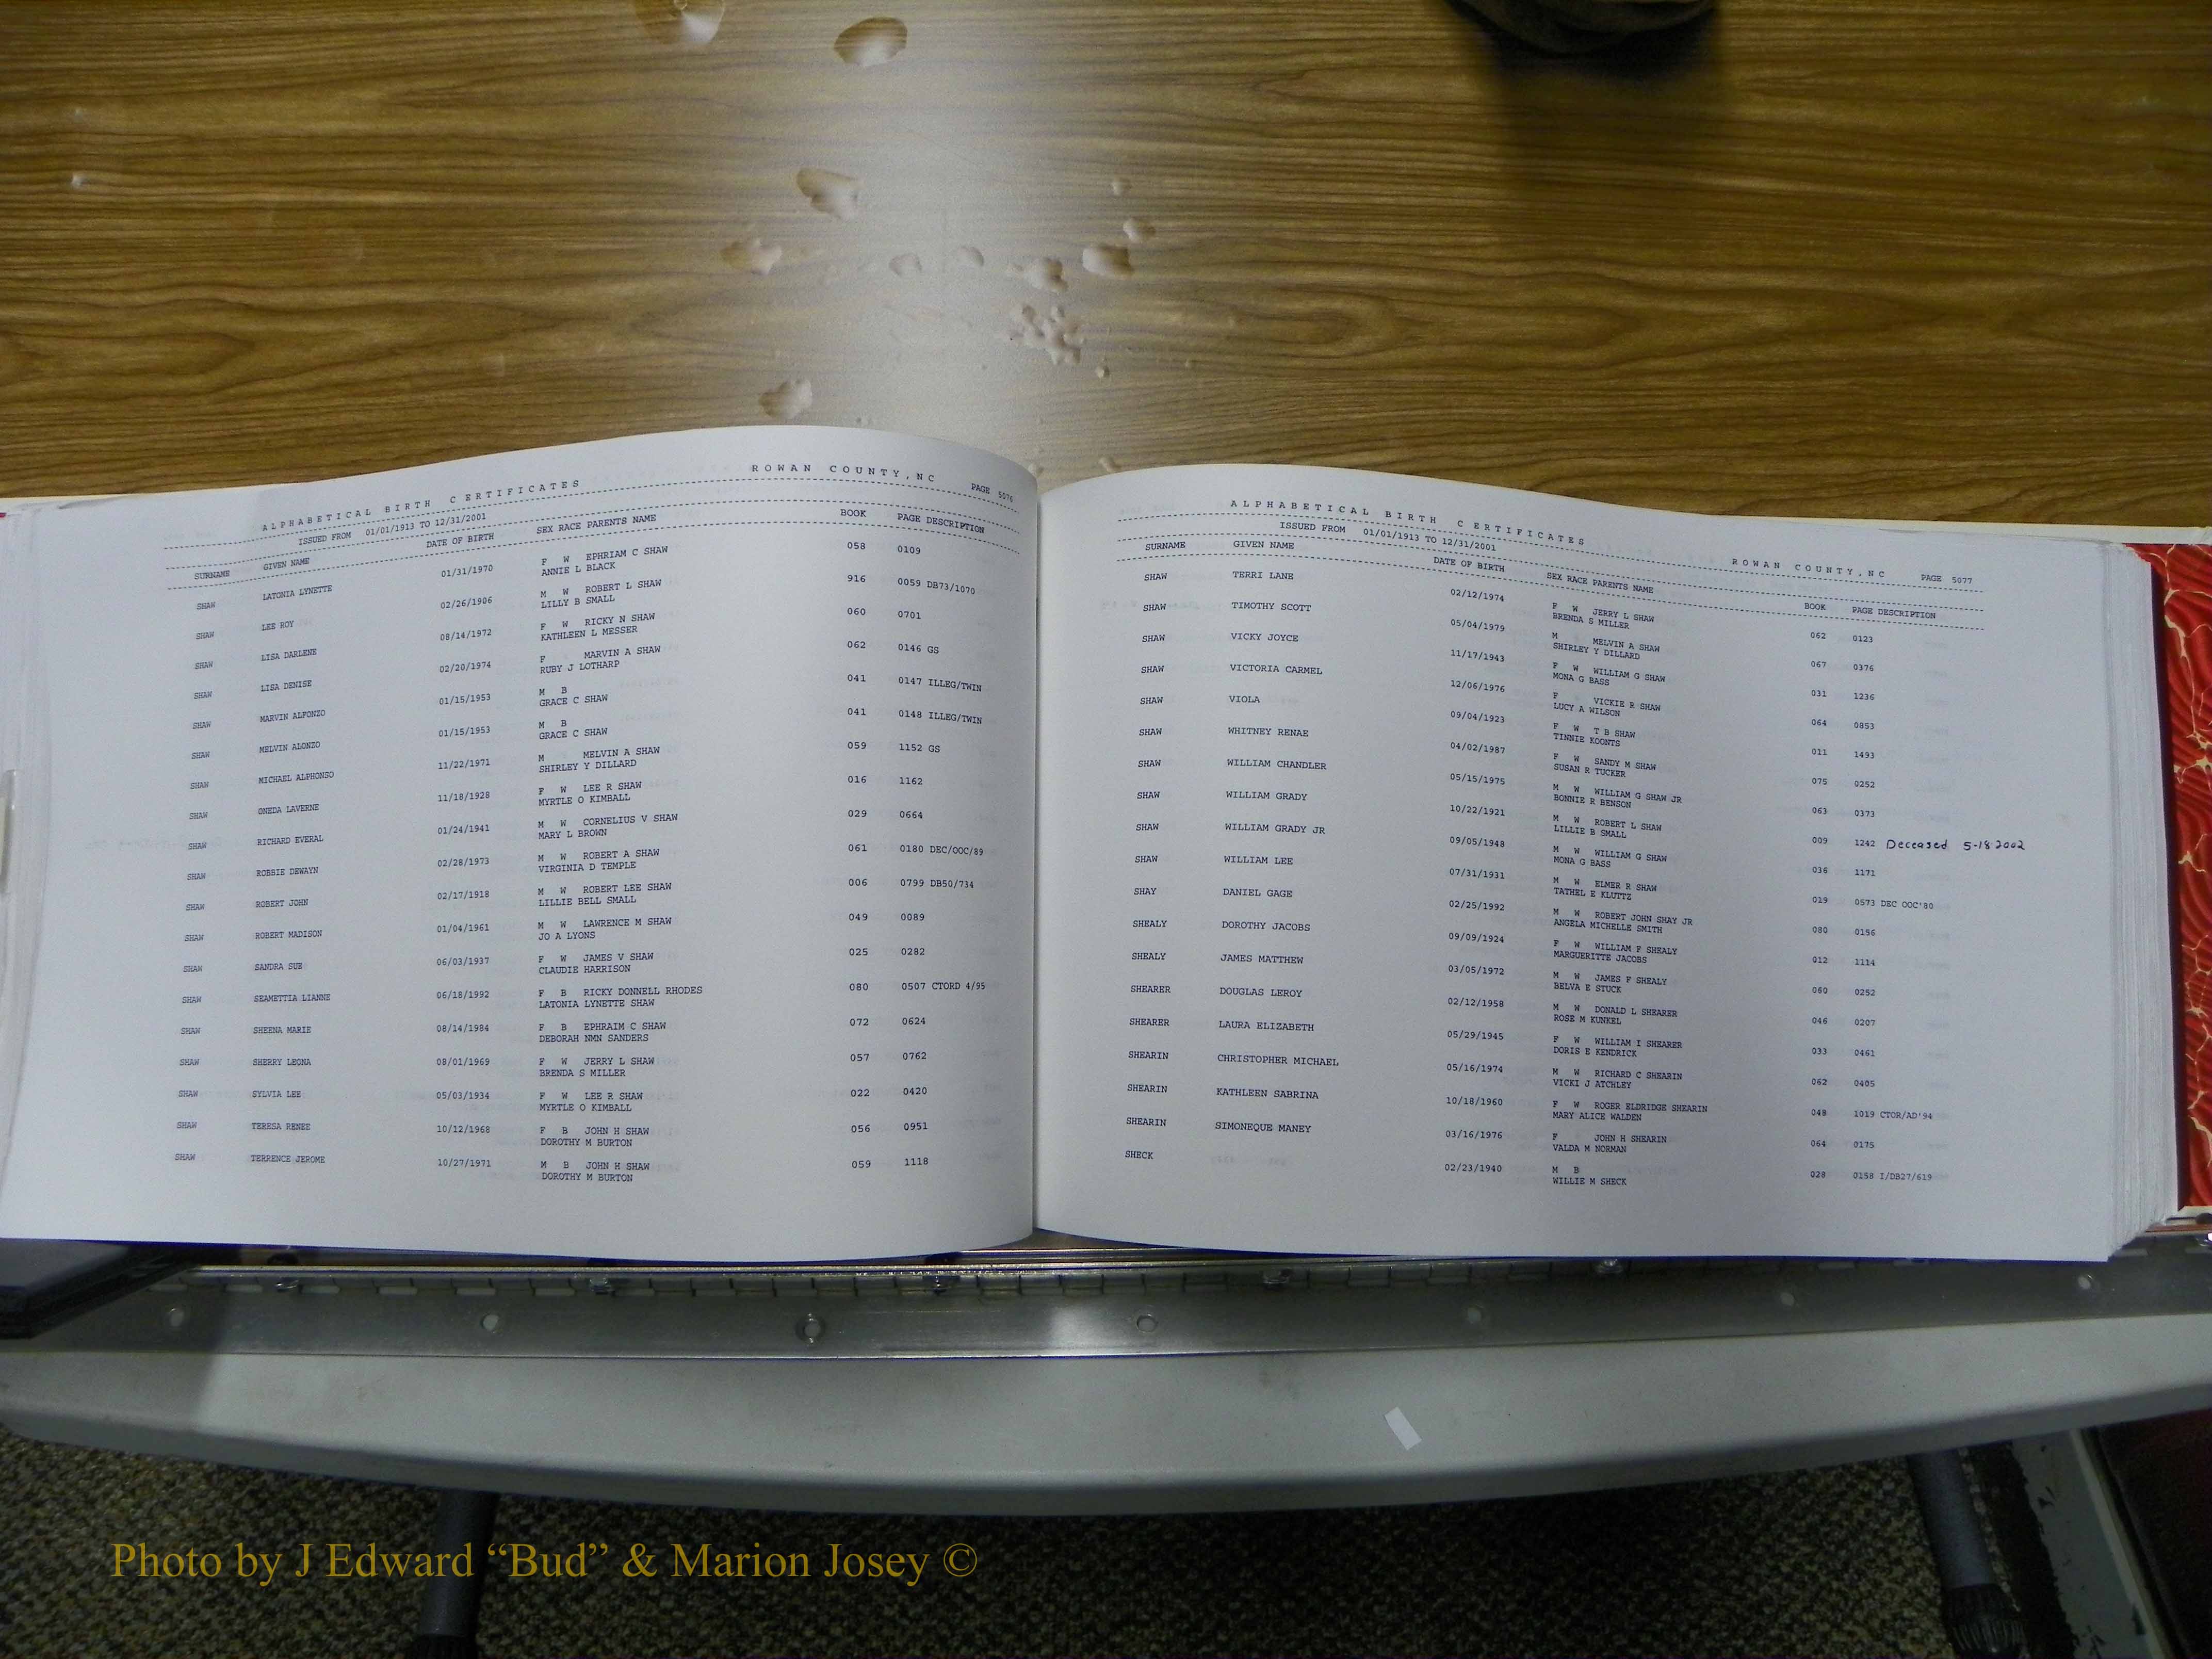 ALPHABETICAL BIRTH CERTIFICATES ROWAN COUNTY,NC PAGE 5076
ISSUED FROM 01/01/1913 TO 12/31/2001
SURNAME GIVEN NAME DATE OF BIRTH SEX RACE PARENTS NAME BOOK PAGE DESCRIPTION
SHAW LATONIA LYNETTE 01/31/1970 F W EPHRIAM C SHAW 058 0109
ANNIE L BLACK
SHAW LEE ROY 02/26/1906 M W ROBERT L SHAW 916 0059 DB73/1070
LILLY B SMALL
SHAW LISA DARLENE 08/14/1972 F W RICKY N SHAW 060 0701
KATHLEEN L MESSER
SHAW LISA DENISE 02/20/1974 F MARVIN A SHAW 062 0146 GS
RUBY J LOTHARP
SHAW MARVIN ALFONZO 01/15/1953 M B 041 0147 ILLEG/TWIN
GRACE C SHAW
SHAW MELVIN ALONZO 01/15/1953 M B 041 0148 ILLEG/TWIN
GRACE C SHAW
SHAW MICHAEL ALPHONSO 11/22/1971 M MELVIN A SHAW 059 1152 GS
SHIRLEY Y DILLARD
SHAW ONEDA LAVERNE 11/18/1928 F W LEE R SHAW 016 1162
MYRTLE O KIMBALL
SHAW RICHARD EVERAL 01/24/1941 M W CORNELIUS V SHAW 029 0664
MARY L BROWN
SHAW ROBBIE DEWAYN 02/28/1973 M W ROBERT A SHAW 061 0180 DEC/OOC/89
VIRGINIA D TEMPLE
SHAW ROBERT JOHN 02/17/1918 M W ROBERT LEE SHAW 006 0799 DB50/734
LILLIE BELL SMALL
SHAW ROBERT MADISON 01/04/1961 M W LAWRENCE M SHAW 049 0089
JO A LYONS
SHAW SANDRA SUE 06/03/1937 F W JAMES V SHAW 025 0282
CLAUDIE HARRISON
SHAW SEAMETTIA LIANNE 06/18/1992 F B RICKY DONNELL RHODES 080 0507 CTORD 4/95
LATONIA LYNETTE SHAW
SHAW SHEENA MARIE 08/14/1984 F B EPHRAIM C SHAW 072 0624
DEBORAH NMN SANDERS
SHAW SHERRY LEONA 08/01/1969 F W JERRY L SHAW 057 0762
BRENDA S MILLER
SHAW SYLVIA LEE 05/03/1934 F W LEE R SHAW 022 0420
MYRTLE O KIMBALL
SHAW TERESA RENEE 10/12/1968 F B JOHN H SHAW 056 0951
DOROTHY M BURTON
SHAW TERRENCE JEROME 10/27/1971 M B JOHN H SHAW 059 1118
DOROTHY M BURTON
ALPHABETICAL BIRTH CERTIFICATES ROWAN COUNTY,NC PAGE 5077
ISSUED FROM 01/01/1913 TO 12/31/2001
SURNAME GIVEN NAME DATE OF BIRTH SEX RACE PARENTS NAME BOOK PAGE DESCRIPTION
SHAW TERRI LANE 02/12/1974 F W JERRY L SHAW 062 0123
BRENDA S MILLER
SHAW TIMOTHY SCOTT 05/04/1979 M MELVIN A SHAW 067 0376
SHIRLEY Y DILLARD
SHAW VICKY JOYCE 11/17/1943 F W WILLIAM G SHAW 031 1236
MONA G BASS
SHAW VICTORIA CARMEL 12/06/1976 F VICKIE R SHAW 064 0853
LUCY A WILSON
SHAW VIOLA 09/04/1923 F W T B SHAW 011 1493
TINNIE KOONTS
SHAW WHITNEY RENAE 04/02/1987 F W SANDY M SHAW 075 0252
SUSAN R TUCKER
SHAW WILLIAM CHANDLER 05/15/1975 M W WILLIAM G SHAW JR 063 0373
BONNIE R BENSON
SHAW WILLIAM GRADY 10/22/1921 M W ROBERT L SHAW 009 1242 Deceased 5-18-2002
LILLIE B SMALL
SHAW WILLIAM GRADY JR 09/05/1948 M W WILLIAM G SHAW 036 1171
MONA G BASS
SHAW WILLIAM LEE 07/31/1931 M W ELMER R SHAW 019 0573 DEC OOC'80
TATHEL E KLUTTZ
SHAY DANIEL GAGE 02/25/1992 M W ROBERT JOHN SHAY JR 080 0156
ANGELA MICHELLE SMITH
SHEALY DOROTHY JACOBS 09/09/1924 F W WILLIAM F SHEALY 012 1114
MARGUERITTE JACOBS
SHEALY JAMES MATTHEW 03/05/1972 M W JAMES F SHEALY 060 0252
BELVA E STUCK
SHEARER DOUGLAS LEROY 02/12/1958 M W DONALD L SHEARER 046 0207
ROSE M KUNKEL
SHEARER LAURA ELIZABETH 05/29/1945 F W WILLIAM I SHEARER 033 0461
DORIS E KENDRICK
SHEARIN CHRISTOPHER MICHAEL 05/16/1974 M W RICHARD C SHEARIN 062 0405
VICKI J ATCHLEY
SHEARIN KATHLEEN SABRINA 10/18/1960 F W ROGER ELDRIDGE SHEARIN 048 1019 CTOR/AD'94
MARY ALICE WALDEN
SHEARIN SIMONEQUE MANEY 03/16/1976 F JOHN H SHEARIN 064 0175
VALDA M NORMAN
SHECK 02/23/1940 M B 028 0158 I/DB27/619
WILLIE M SHECK
Photo by J Edward “Bud” & Marion Josey ©